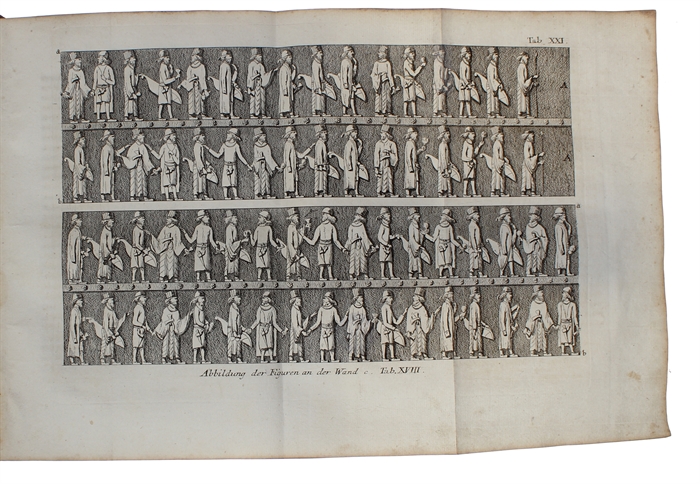 Tab. XXI.
a
A
A
b
a
b
Abbildung der Figuren an der Wand c. Tab. XVIII.